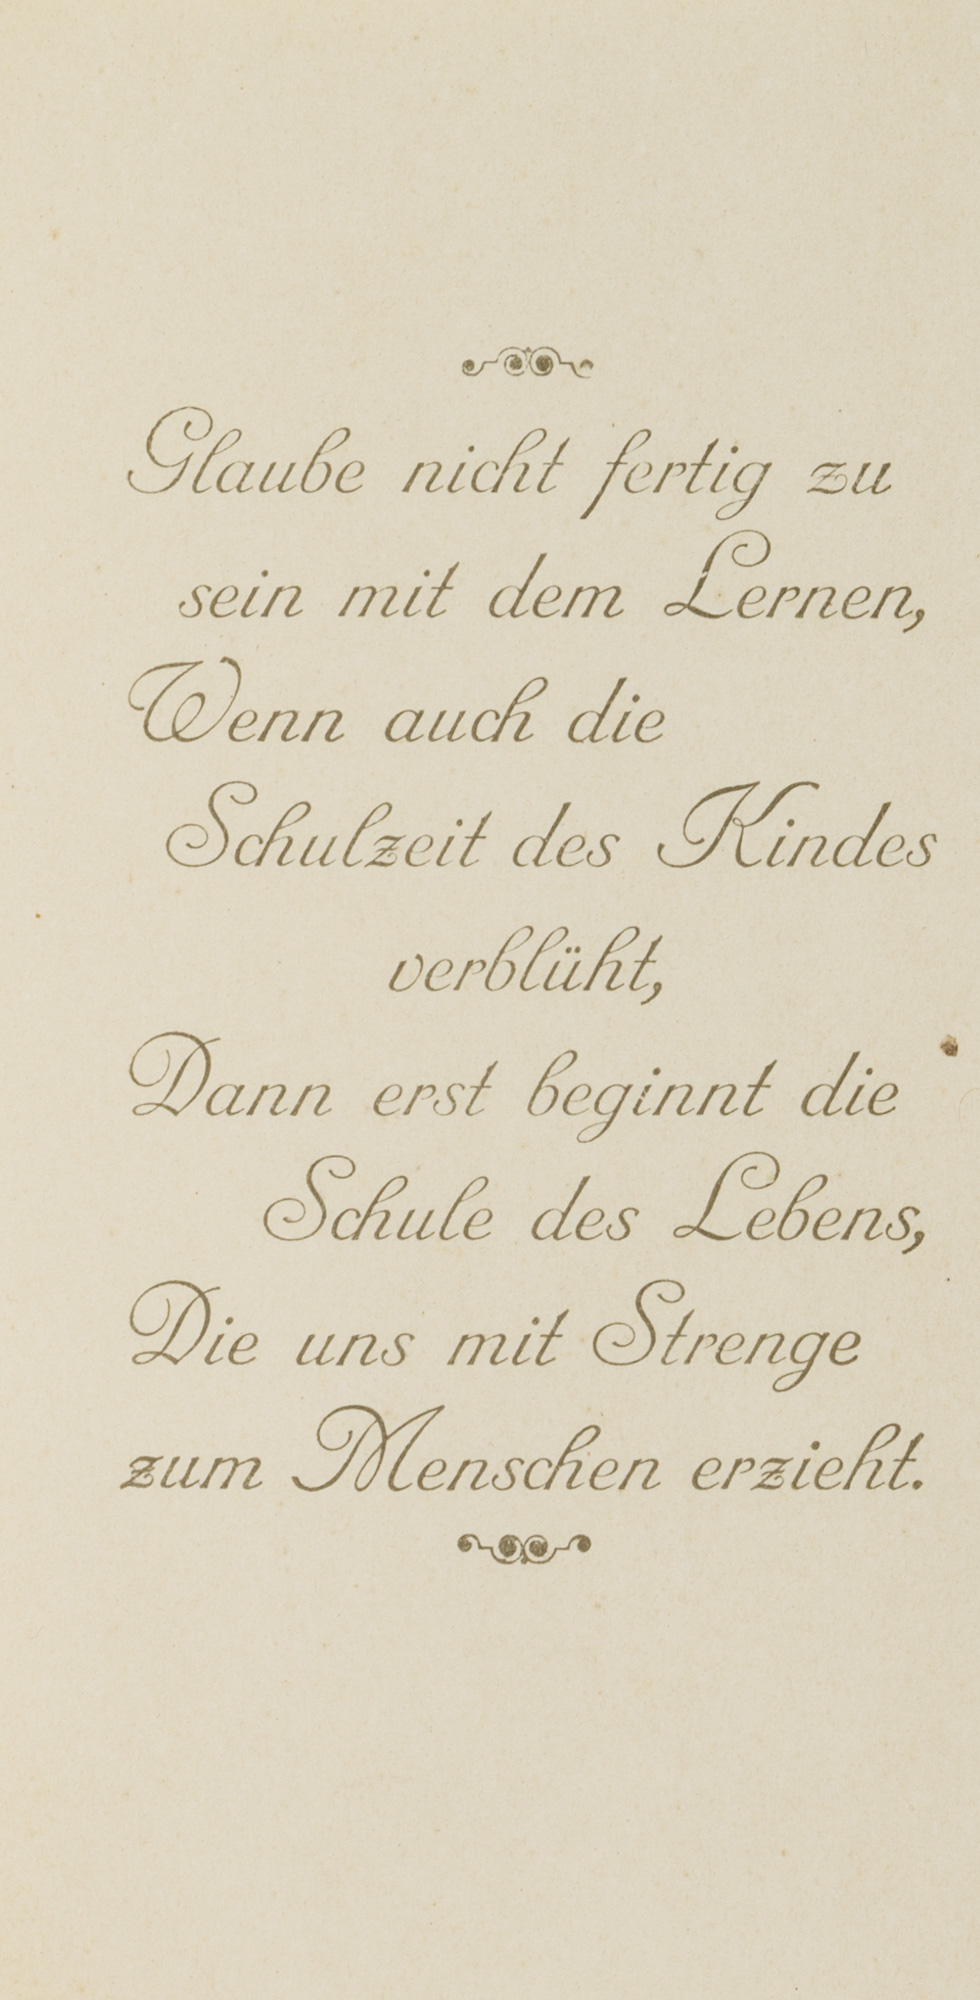 Glaube nicht fertig zu
sein mit dem Lernen,
Wenn auch die
Schulzeit des Kindes
verblüht,
Dann erst beginnt die
Schule des Lebens,
Die uns mit Strenge
zum Menschen erzieht.